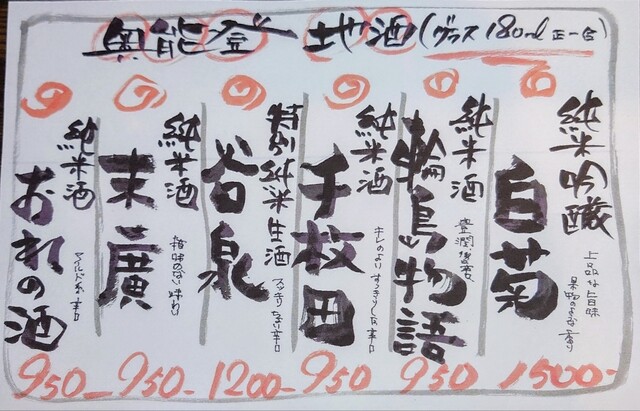 奥能登 地酒(グラス180ml正一合)
純米吟醸
白菊
上品な旨味
果物のような香り
1500-
純米酒
輪島物語
950-
純米酒
千枚田
キレのよいすっきりした辛口
950-
特別純米生酒
谷泉
スッキリ
辛口
1200-
純米酒
末廣
雑味のない味わり
950-
純米酒
おれの酒
マイルド系辛口
950-